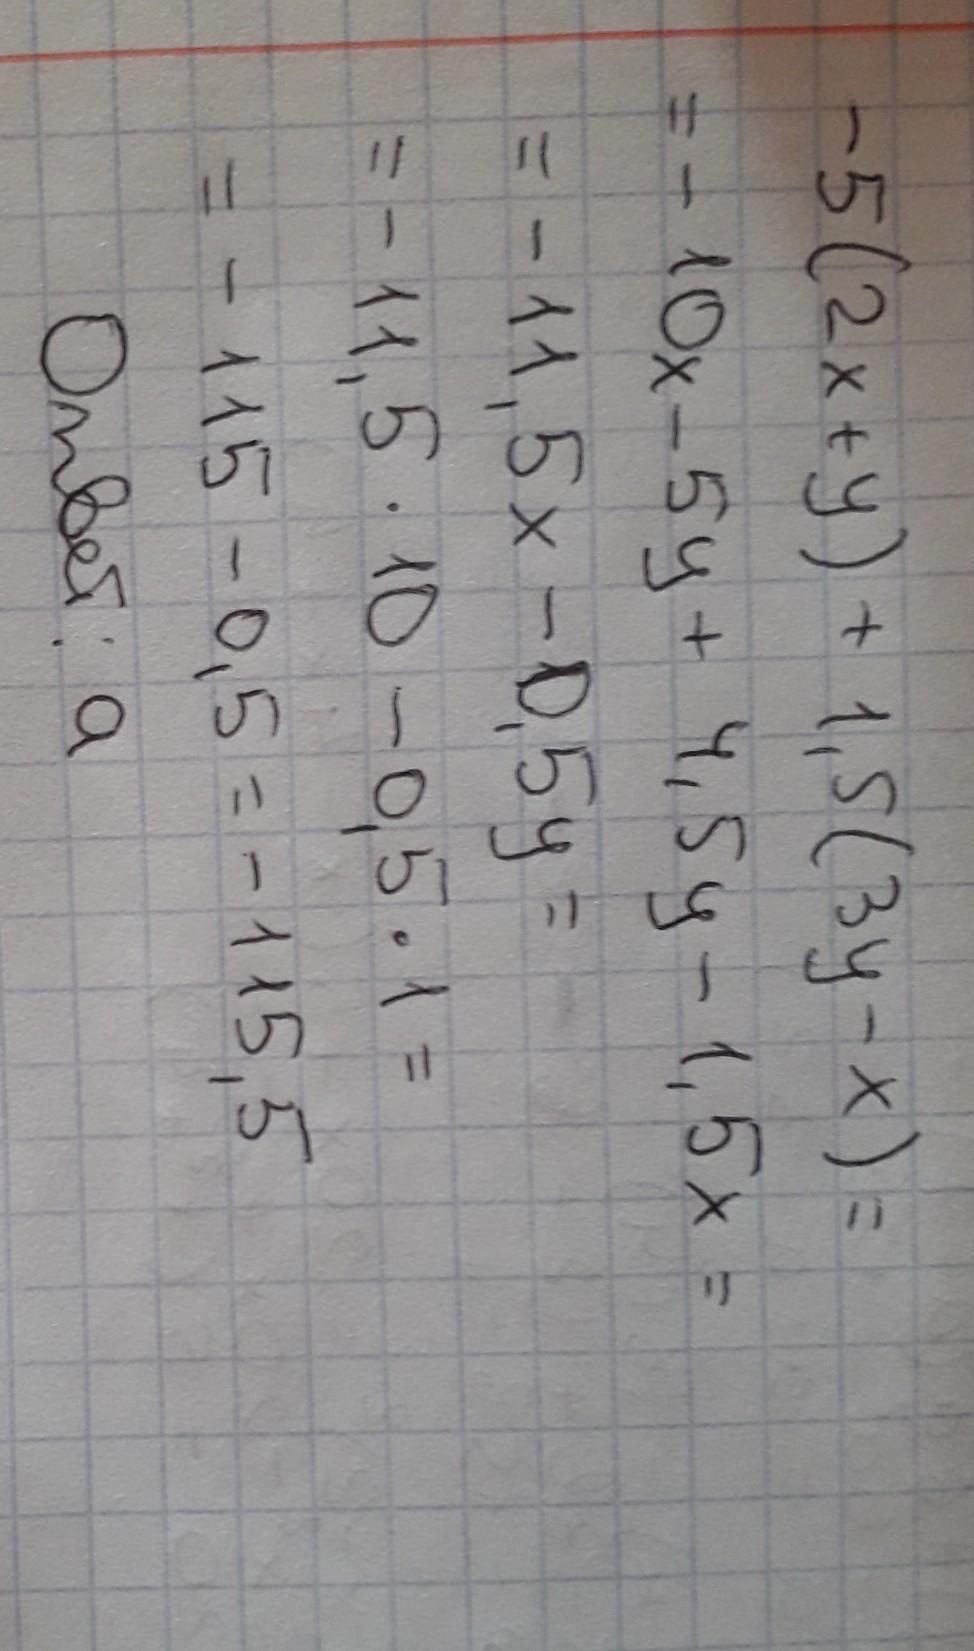 -5(2x+y)+1,5(3y-x)=
=-10x-5y+4,5y-1,5x=
=-11,5x-0,5y=
=-11,5·10-0,5·1=
=-115-0,5=-115,5
Ответ: а